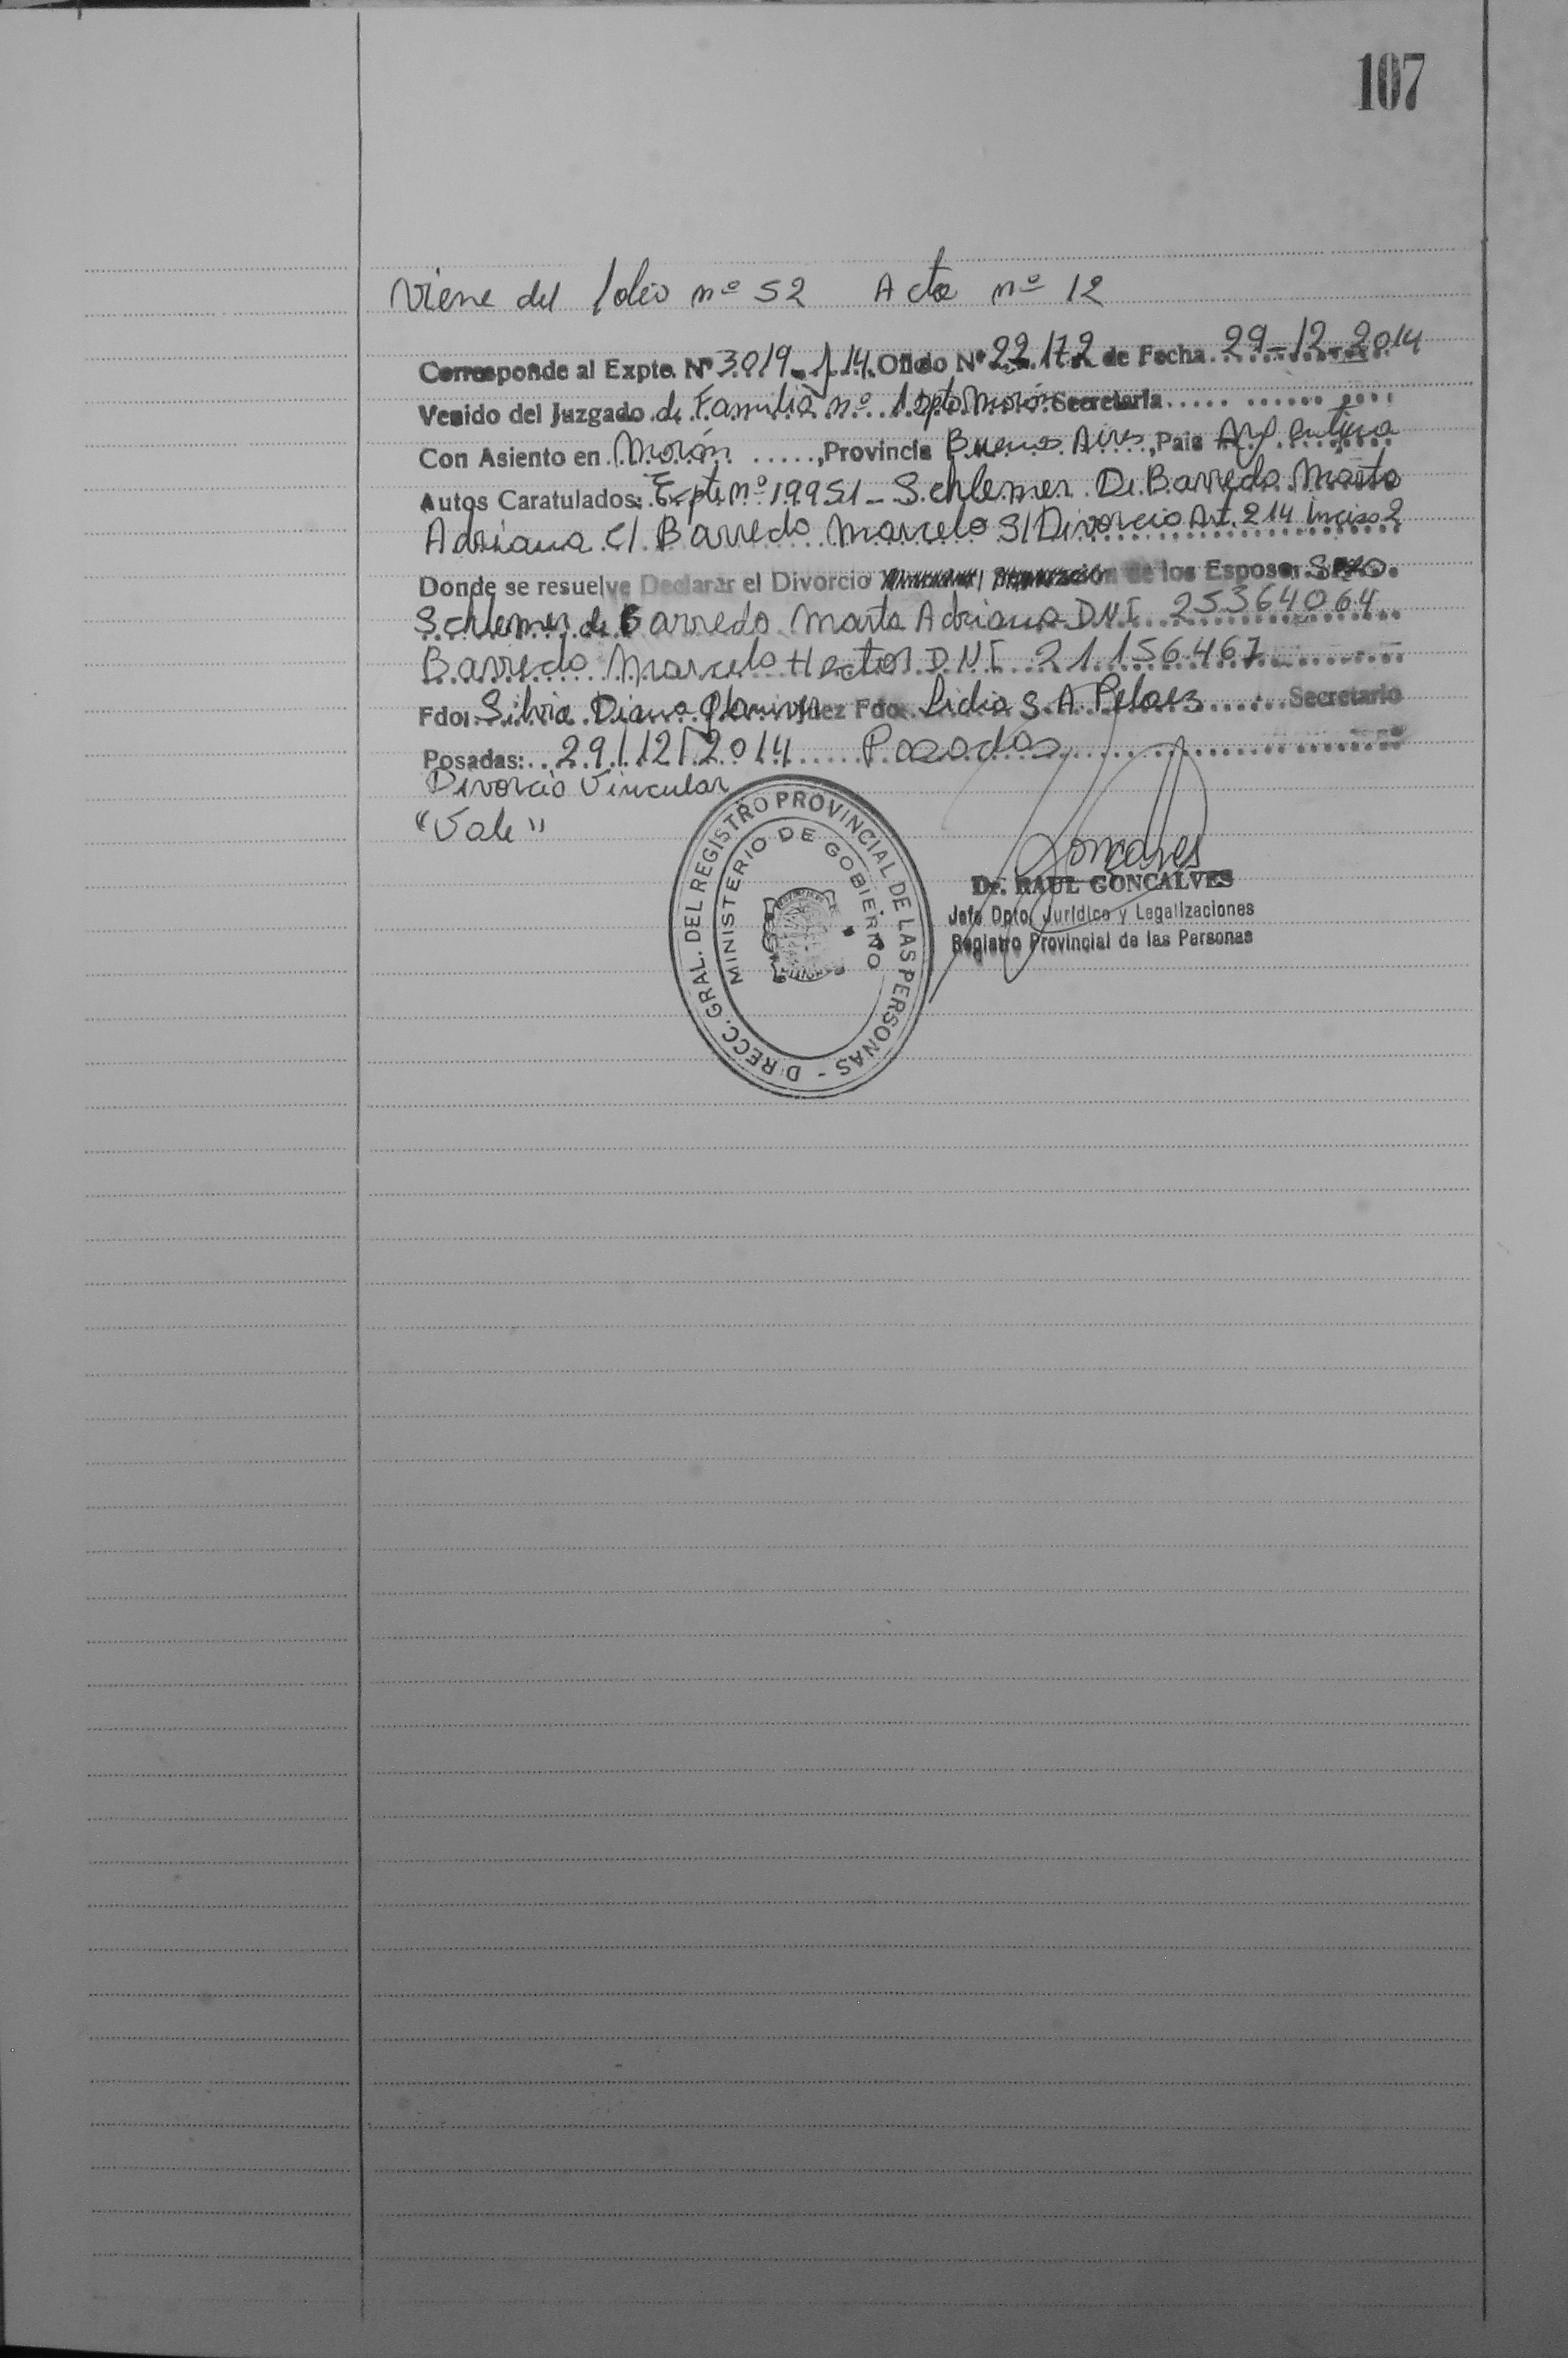 107
Viene del folio nº 52 Acta nº 12
Corresponde al Expte. Nº 3019 / 14 Oficio Nº 22.172 de Fecha 29-12-2014
Venido del Juzgado de Familia nº 1 Dpto Morón Secretaría
Con Asiento en Morón, Provincia Buenos Aires, Pais Argentina
Autos Caratulados: Expte nº 19951 - Schlemer De Barredo Marta
Adriana C/ Barredo Marcelo S/ Divorcio Art. 214 Inciso 2
Donde se resuelve Declarar el Divorcio de los Esposos
Schlemer de Barredo Marta Adriana DNI 25364064
Barredo Marcelo Hector DNI 21156467
Fdo: Silvia Diana Juez Fdo: Lidia S. A. Pelaez Secretario
Posadas: 29/12/2014 Posadas
Divorcio Vincular
"Vale"
DIRECC. GRAL. DEL REGISTRO PROVINCIAL DE LAS PERSONAS -
MINISTERIO DE GOBIERNO
Goncalves
Dr. RAUL GONCALVES
Jefe Dpto. Jurídico y Legalizaciones
Registro Provincial de las Personas